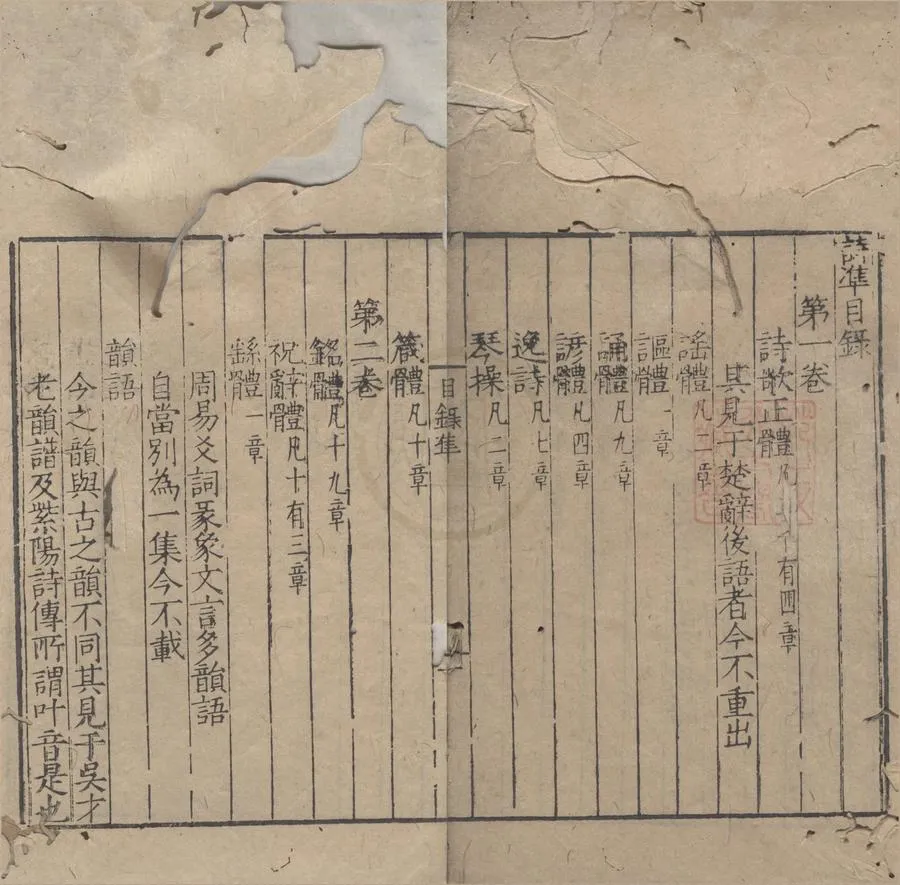 詩準目錄
第一卷
詩歌正體凡 有四章
其見于楚辭後語者今不重出
謡體凡二章
謳體一章
誦體凡九章
諺體凡四章
逸詩凡七章
琴操凡二章
目錄準
箴體凡十章
第二卷
銘體凡十九章
祝辭體凡十有三章
繇體一章
周易爻詞彖象文言多韻語
自當别為一集今不載
韻語
今之韻與古之韻不同其見于吳才
老韻譜及紫陽詩傳所謂叶音是也